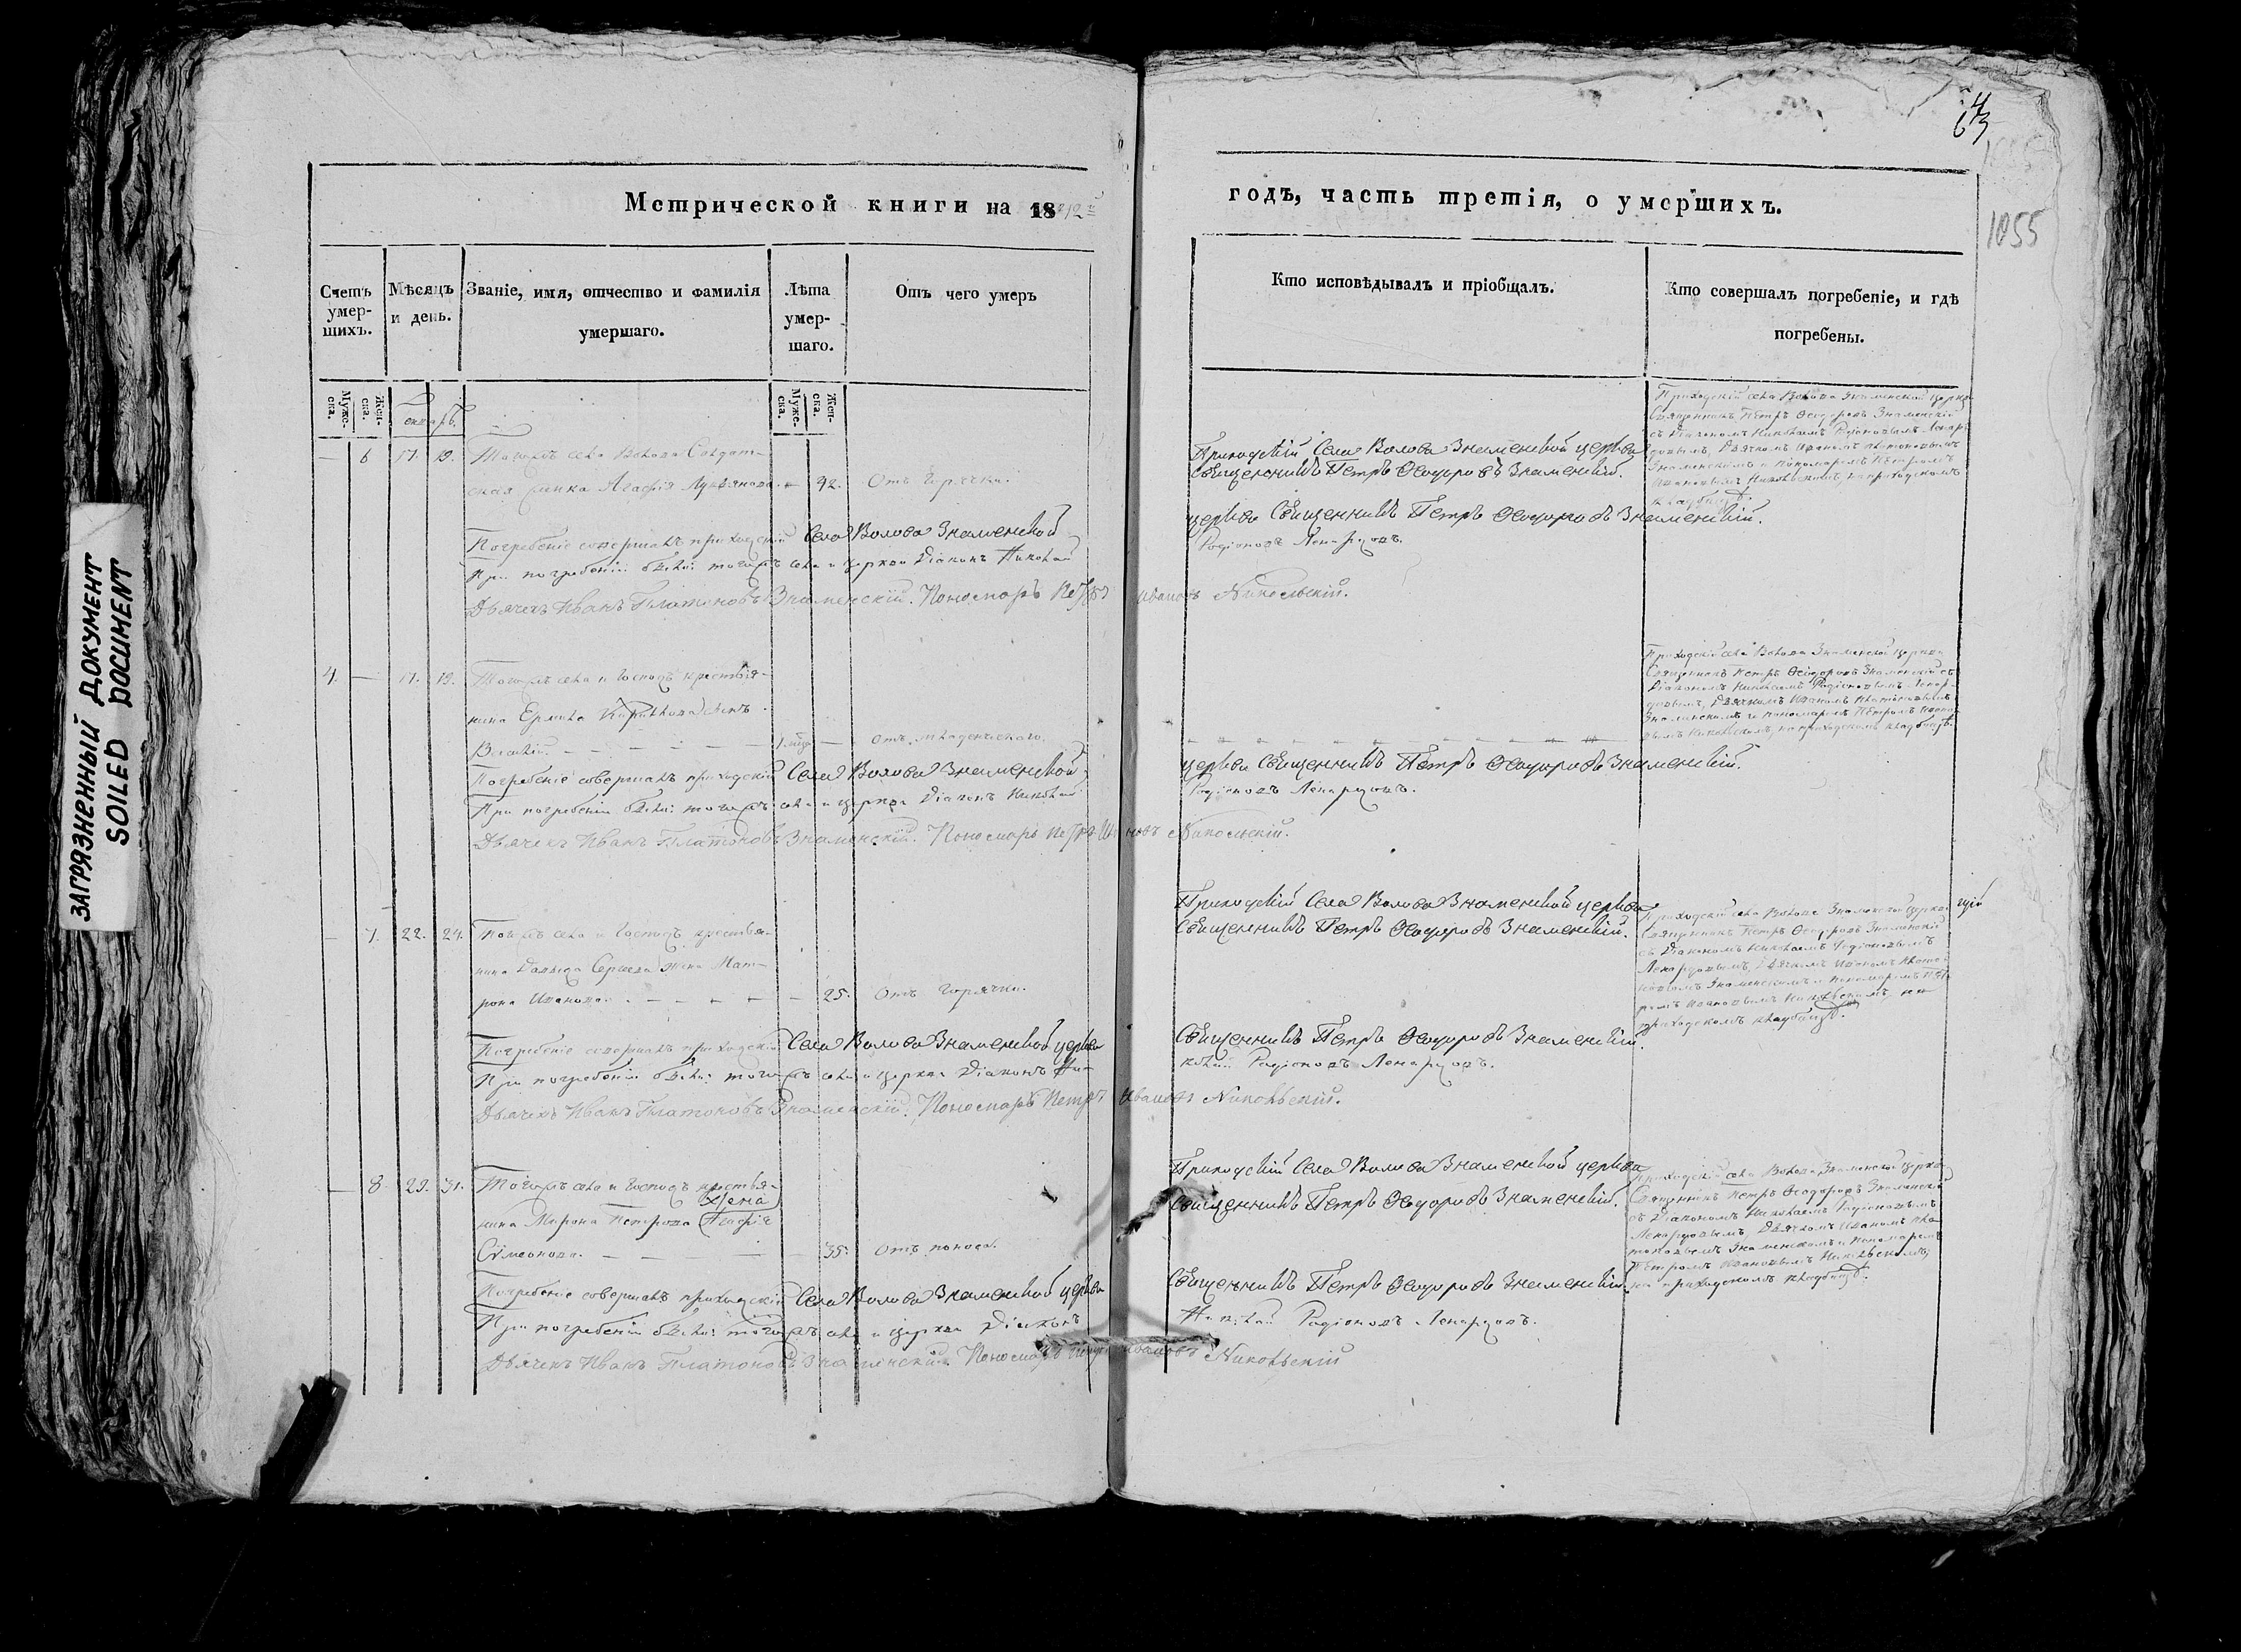 ЗАГРЯЗНЕННЫЙ ДОКУМЕНТ
SOILED DOCUMENT
Метрической книги на 1842й
Счетъ умер-
шихъ.
Мѣсяцъ
и день.
Званіе, имя, отчество и фамилія
умершаго.
Лѣта
умер-
шаго.
Отъ чего умеръ
Муже-
ска.
Жен-
ска.
Муже-
ска.
Жен-
ска.
— 6 17. 19. Тогожъ села Волова Солдат-
ская Агафія Лукьянова. 42. Отъ горячки.
Погребеніе совершалъ приходскій Села Волова Знаменской
При погребеніи были: тогожъ села и церкви Діаконъ Николай
Дьячекъ Иванъ Платоновъ Знаменскій. Пономарь Петръ Ивановъ Никольскій.
4. — 17. 19. Тогожъ села и господъ крестья-
нина Ермила сынъ
Василій. — — — — — — Отъ младенческаго.
Погребеніе совершалъ приходскій Села Волова Знаменской
При погребеніи были: тогожъ села и церкви Діаконъ Николай
Дьячекъ Иванъ Платоновъ Знаменскій. Пономарь Петръ Ивановъ Никольскій.
— 7. 22. 24. Тогожъ села и господъ крестья-
нина Давыда Сергеева жена Мат-
рона Иванова. — — — — — 25. Отъ горячки.
Погребеніе совершалъ приходскій Села Волова Знаменской церкви
При погребеніи были: тогожъ села и церкви Діаконъ Ни-
Дьячекъ Иванъ Платоновъ Знаменскій. Пономарь Петръ Ивановъ Никольскій.
— 8 29. 31. Тогожъ села и господъ крестья-
жена
нина Мирона Петрова Агафія
Сѵмеонова. — — — — 35. Отъ поноса.
Погребеніе совершалъ приходскій Села Волова Знаменской церкви
При погребеніи были: тогожъ села и церкви Діаконъ
Дьячекъ Иванъ Платоновъ Знаменскій. Пономарь Петръ Ивановъ Никольскій
63
1055
годъ, часть третія, о умершихъ.
Кто исповѣдывалъ и пріобщалъ.
Кто совершалъ погребеніе, и гдѣ
погребены.
Приходскій Села Волова Знаменской церкви
Священникъ Петръ Ѳеодоровъ Знаменскій.
церкви Священникъ Петръ Ѳеодоровъ Знаменскій.
Родіоновъ Ленардовъ.
Приходскій села Волова Знаменской церкви
Священникъ Петръ Ѳеодоровъ Знаменскій
съ Діакономъ Николаемъ Родіоновымъ Ленар-
довымъ, Дьячкомъ Иваномъ Платоновымъ
Знаменскимъ и пономаремъ Петромъ
Ивановымъ Никольскимъ, на приходскомъ
кладбищѣ.
церкви Священникъ Петръ Ѳеодоровъ Знаменскій.
Родіоновъ Ленардовъ.
Приходскій села Волова Знаменской церкви
Священникъ Петръ Ѳеодоровъ Знаменскій съ
Діакономъ Николаемъ Родіоновымъ Ленар-
довымъ, Дьячкомъ Иваномъ Платоновымъ
Знаменскимъ и пономаремъ Петромъ Ивано-
вымъ Никольскимъ, на приходскомъ кладбищѣ.
Приходскій Села Волова Знаменской церкви
Священникъ Петръ Ѳеодоровъ Знаменскій.
Священникъ Петръ Ѳеодоровъ Знаменскій.
колай Родіоновъ Ленардовъ.
Приходскій села Волова Знаменской церкви
Священникъ Петръ Ѳеодоровъ Знаменскій
съ Діакономъ Николаемъ Родіоновымъ
Ленардовымъ, Дьячкомъ Иваномъ Плато-
новымъ Знаменскимъ и пономаремъ Пет-
ромъ Ивановымъ Никольскимъ, на
приходскомъ кладбищѣ.
Приходскій Села Волова Знаменской церкви
Священникъ Петръ Ѳеодоровъ Знаменскій.
Священникъ Петръ Ѳеодоровъ Знаменскій.
Николай Родіоновъ Ленардовъ.
Приходскій села Волова Знаменской церкви
Священникъ Петръ Ѳеодоровъ Знаменскій
съ Діакономъ Николаемъ Родіоновымъ
Ленардовымъ, Дьячкомъ Иваномъ Пла-
тоновымъ Знаменскимъ и пономаремъ
Петромъ Ивановымъ Никольскимъ,
на приходскомъ кладбищѣ.